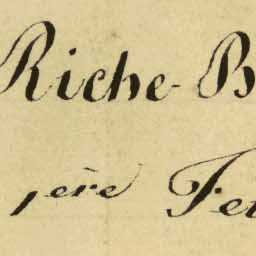 Riche-B
1ère Fe